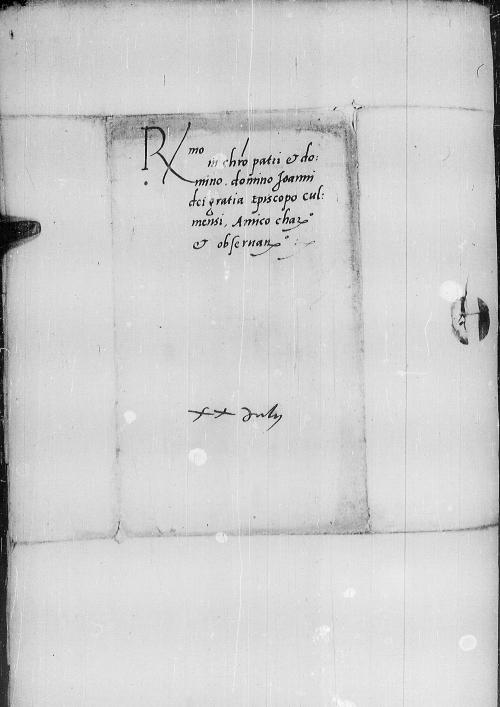 R.mo
in chro patri et do:
mino. domino Joanni
dei gratia Episcopo Cul:
mensi, Amico char.o
et obseruan.o
xx July